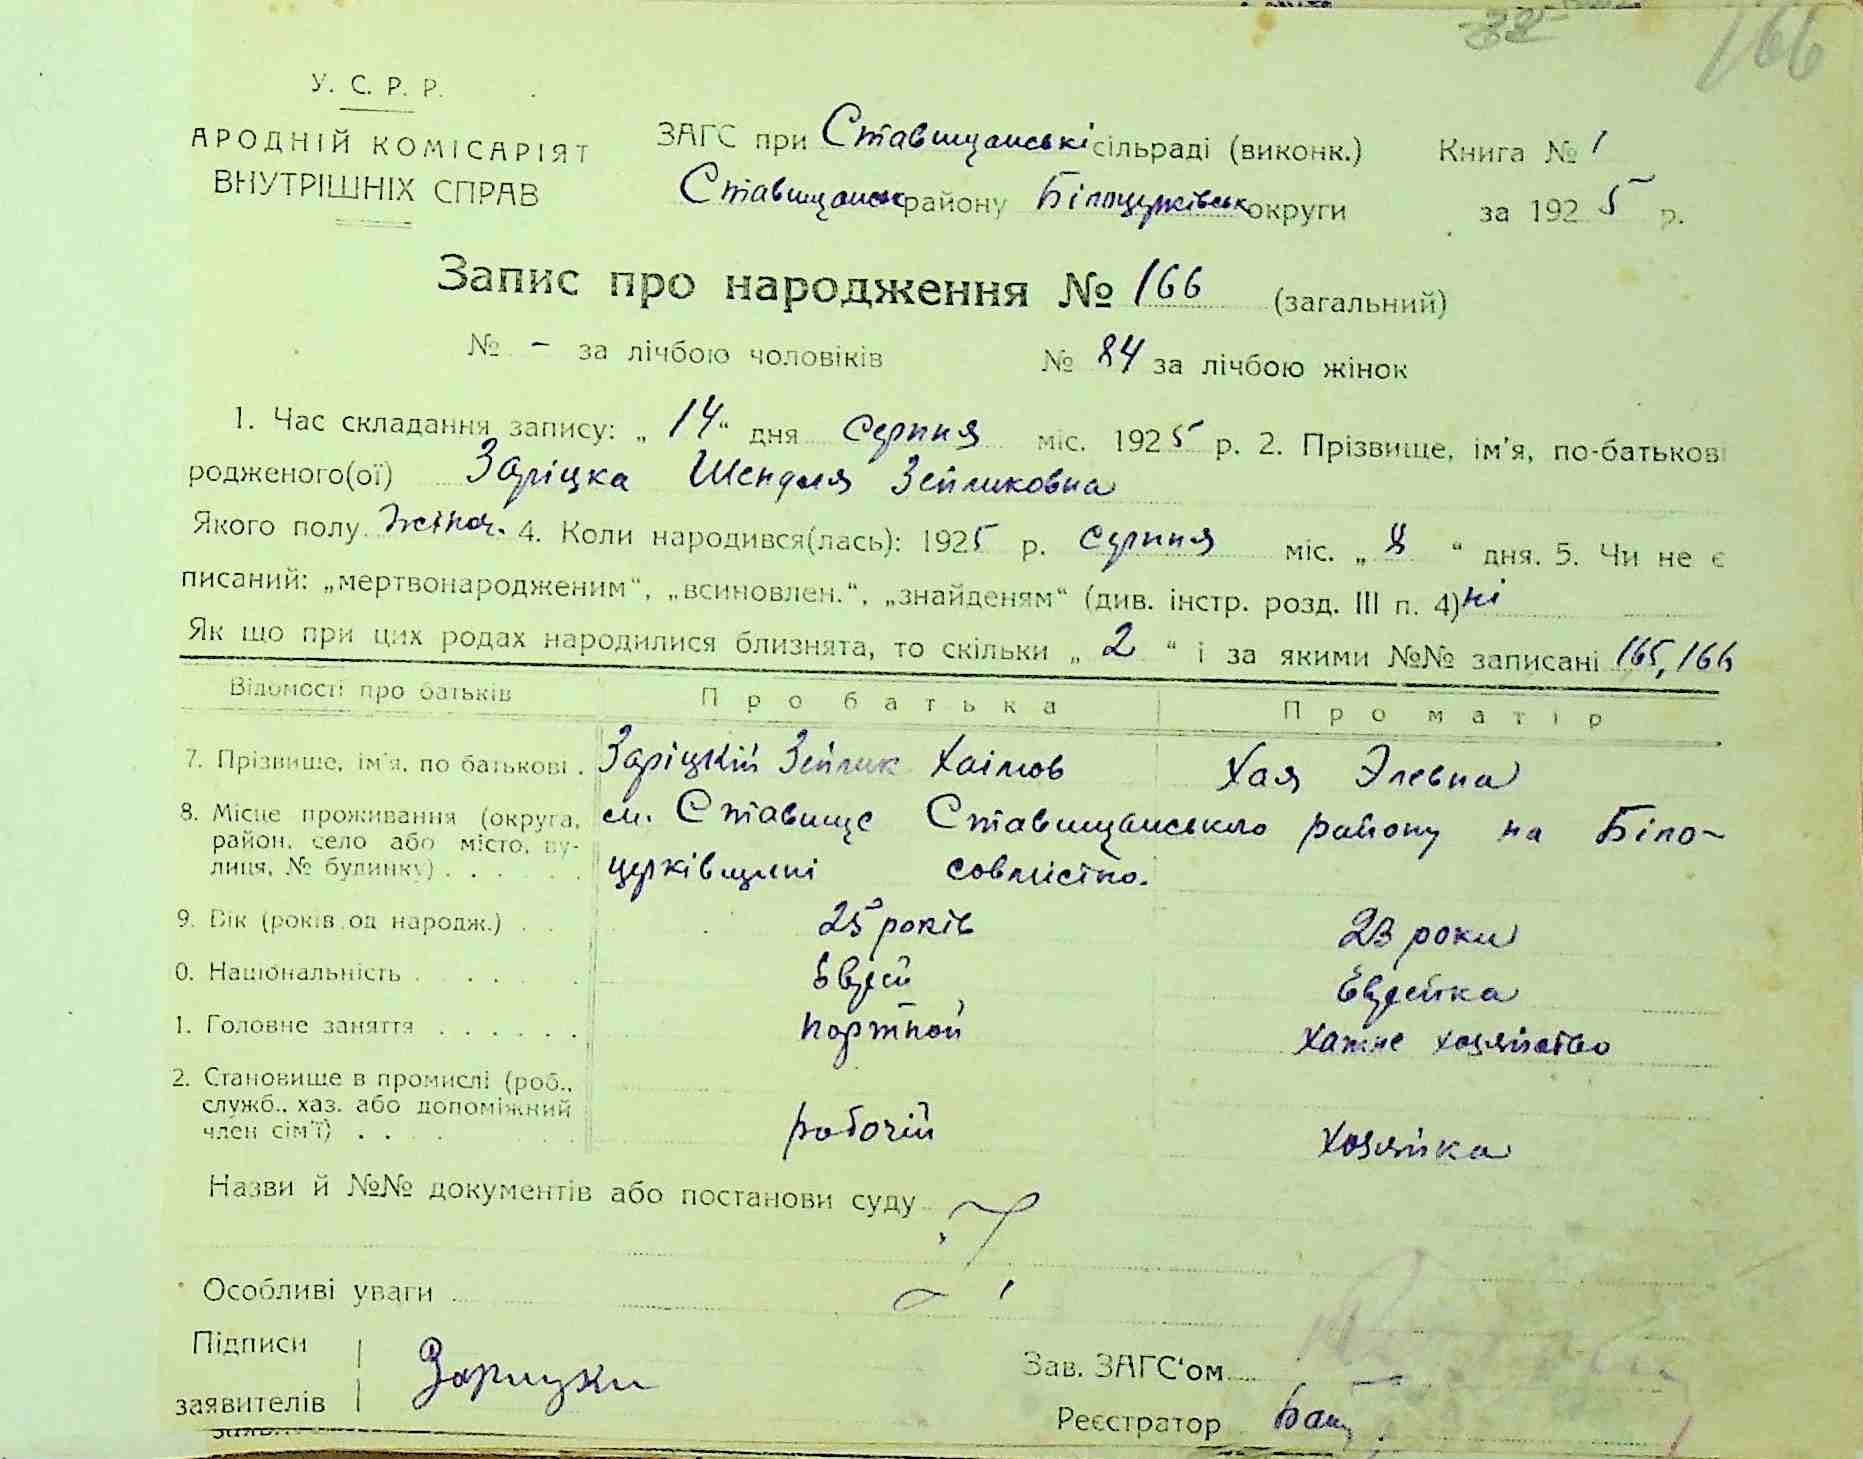 166
У. С. Р. Р.
АРОДНІЙ КОМІСАРІЯТ
ВНУТРІШНІХ СПРАВ
ЗАГС при Ставищанські сільраді (виконк.) Книга № 1
Ставищанськ району Білоцерківськ округи за 1925 р.
Запис про народження № 166 (загальний)
№ – за лічбою чоловіків № 84 за лічбою жінок
1. Час складання запису: „14“ дня Серпня міс. 1925 р. 2. Прізвище, ім'я, по-батькові
родженого(ої) Заріцка Шендля Зейликовна
Якого полу жіноч. 4. Коли народився(лась): 1925 р. Серпня міс. „8“ дня. 5. Чи не є
писаний: „мертвонародженим“, „всиновлен.“, „знайденям“ (див. інстр. розд. III п. 4) ні
Як що при цих родах народилися близнята, то скільки „2“ і за якими №№ записані 165, 166
Відомості про батьків Про батька Про матір
7. Прізвище, ім'я, по батькові . Заріцкій Зейлик Хаімов Хая Элевна
8. Місце проживання (округа, м. Ставище Ставищанського району на Біло-
район, село або місто, ву-
лиця, № будинку) . . . . . церківщині совмістно.
9. Вік (років од народж.) . . 25 років 23 роки
0. Національність . . . . . Еврей Еврейка
1. Головне заняття . . . . . . портной хатне хозяйство
2. Становище в промислі (роб.,
служб., хаз. або допоміжний
член сім'ї) . . . робочій хозяйка
Назви й №№ документів або постанови суду
Особливі уваги
Підписи
заявителів Зарицки
Зав. ЗАГС'ом
Реєстратор